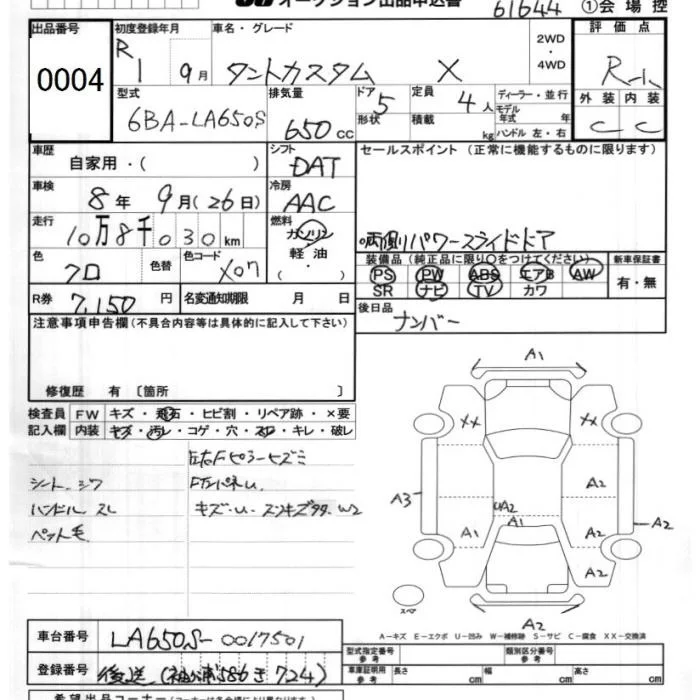 オークション出品申込書 61644 ①会場控
出品番号 初度登録年月 車名・グレード 2WD・4WD 評価点
0004 R1 9月 タントカスタム X R-1
型式 排気量 ドア 5 定員 4人 ディーラー・並行 外装 内装
6BA-LA650S 650cc 形状 積載 kg モデル年式 年 C C
ハンドル 左・右
車歴 シフト セールスポイント (正常に機能するものに限ります)
自家用・( ) DAT
車検 冷房
8年 9月(26日) AAC
走行 燃料
10万8千030km ガソリン 両側パワースライドドア
色 色替 色コード 軽油 装備品(純正品に限り○をつけてください) 新車保証書
クロ X07 ・( ) PS PW ABS エアB AW 有・無
SR ナビ TV カワ
R券 7,150円 名変通知期限 月 日 後日品
ナンバー
注意事項申告欄(不具合内容等は具体的に記入して下さい)
修復歴 有 〔箇所 〕
検査員 FW キズ・飛石・ヒビ割・リペア跡・×要
記入欄 内装 キズ・汚レ・コゲ・穴・スレ・キレ・破レ
左右Fピラーヒズミ
シート シワ
ハンドル スレ
ペット毛
A1
XX XX
A2
A3 UA2
A1
A1 A2 A2
A2
スペア A2
A-キズ E-エクボ U-凹み W-補修跡 S-サビ C-腐食 XX-交換済
車台番号 LA650S-0017501 型式指定番号 参考 類別区分番号 参考
登録番号 後送(袖ヶ浦586き724) 車庫証明用 参考 長さ cm 幅 cm 高さ cm
希望出品コーナー